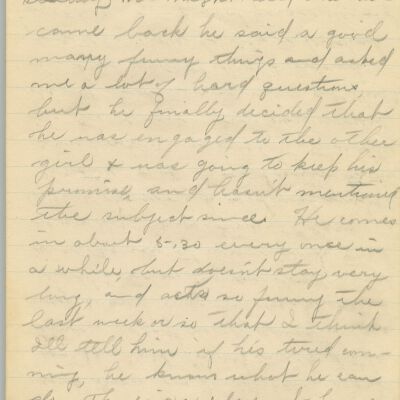 came back he said a good
many funny things and asked
me a lot of hard questions
but he finally decided that
he was engaged to the other
girl & was going to keep his
promise, and hasn't mentioned
the subject since. He comes
in about 5.30 every once in
a while, but doesn't stay very
long, and acts so funny the
last week or so that I think
I'll tell him if he's tired com-
ing, he knows what he can
do.